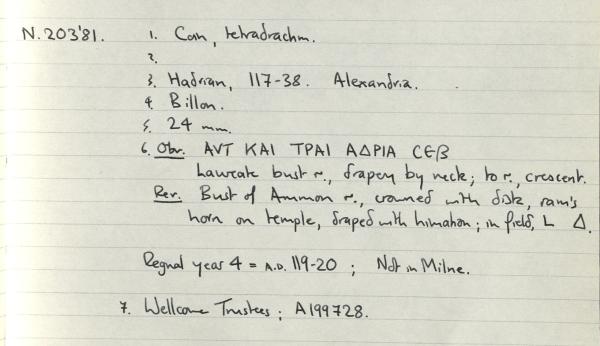 N.203'81. 1. Coin, tetradrachm.
2.
3. Hadrian, 117-38. Alexandria.
4. Billon.
5. 24 mm.
6. Obv. ΑVΤ ΚΑΙ ΤΡΑΙ ΑΔΡΙΑ CЄΒ
Laureate bust r., drapery by neck; to r., crescent.
Rev. Bust of Ammon r., crowned with disk, ram's
horn on temple, draped with himation; in field, L Δ.
Regnal year 4 = A.D. 119-20 ; Not in Milne.
7. Wellcome Trustees; A199728.